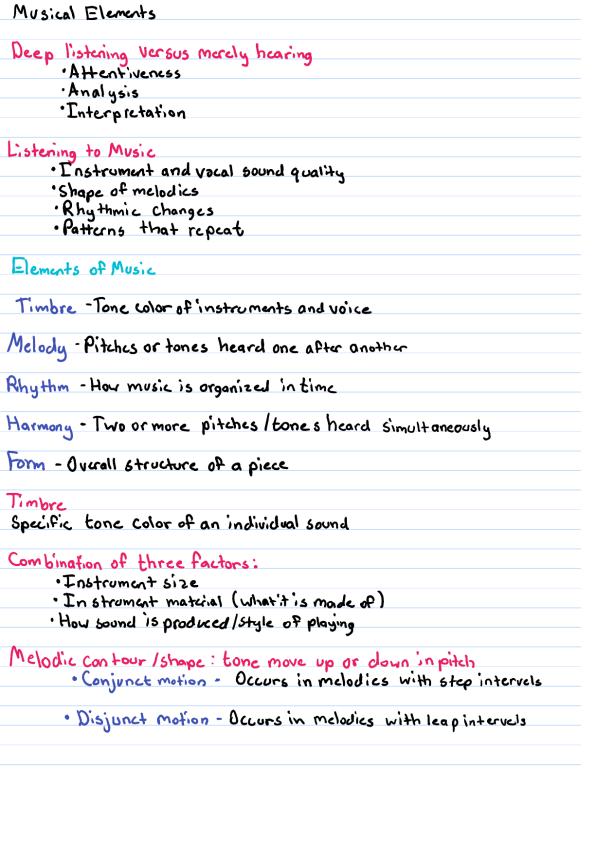 Musical Elements
Deep listening versus merely hearing
•Attentiveness
•Analysis
•Interpretation
Listening to Music
•Instrument and vocal sound quality
•Shape of melodies
•Rhythmic changes
•Patterns that repeat
Elements of Music
Timbre -Tone color of instruments and voice
Melody - Pitches or tones heard one after another
Rhythm - How music is organized in time
Harmony - Two or more pitches/tones heard simultaneously
Form - Overall structure of a piece
Timbre
Specific tone color of an individual sound
Combination of three factors:
•Instrument size
•Instrument material (what it is made of)
•How sound is produced/style of playing
Melodic contour/shape: tone move up or down in pitch
•Conjunct motion - Occurs in melodies with step intervals
•Disjunct motion - Occurs in melodies with leap intervals